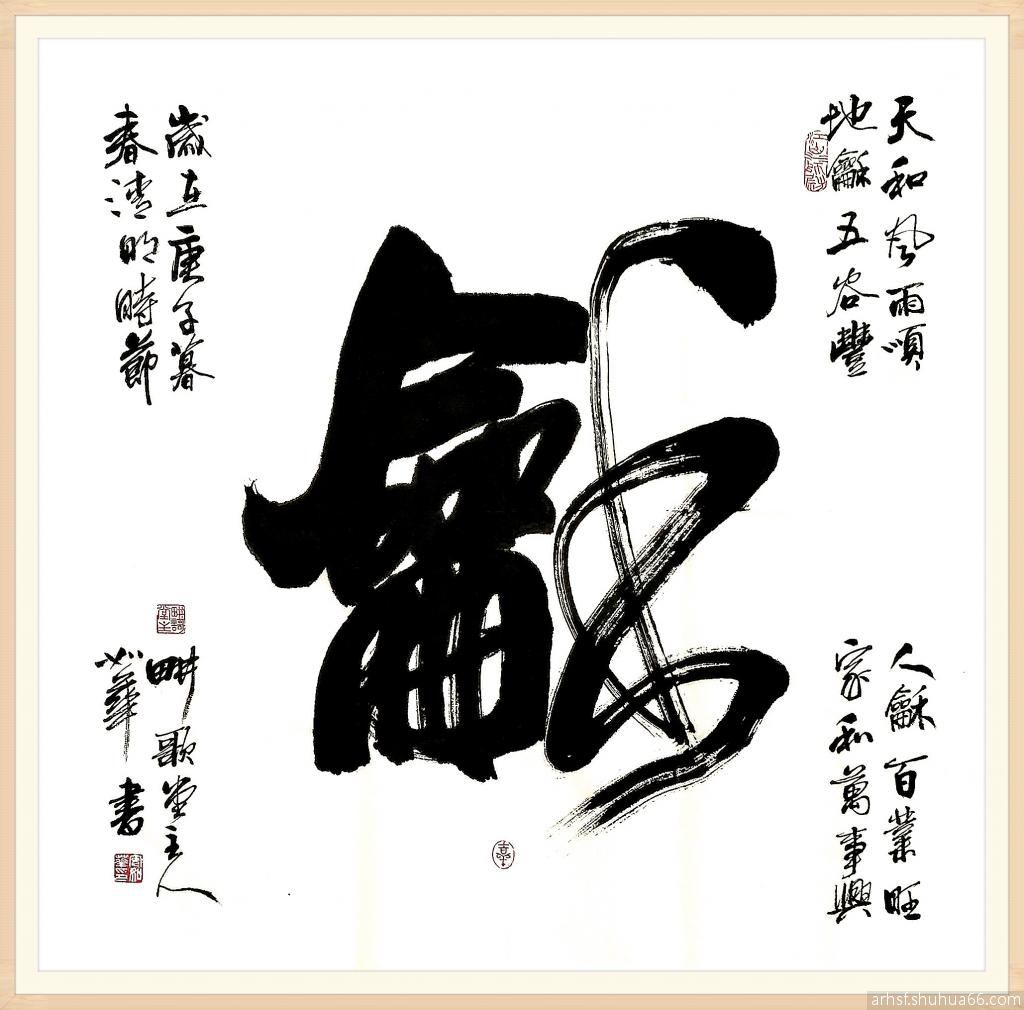 龢
天和風雨順
地龢五谷豐
人龢百業旺
家和萬事興
歲在庚子暮
春清明時節
畊歌堂主人
華書
arhsf.shuhua66.com